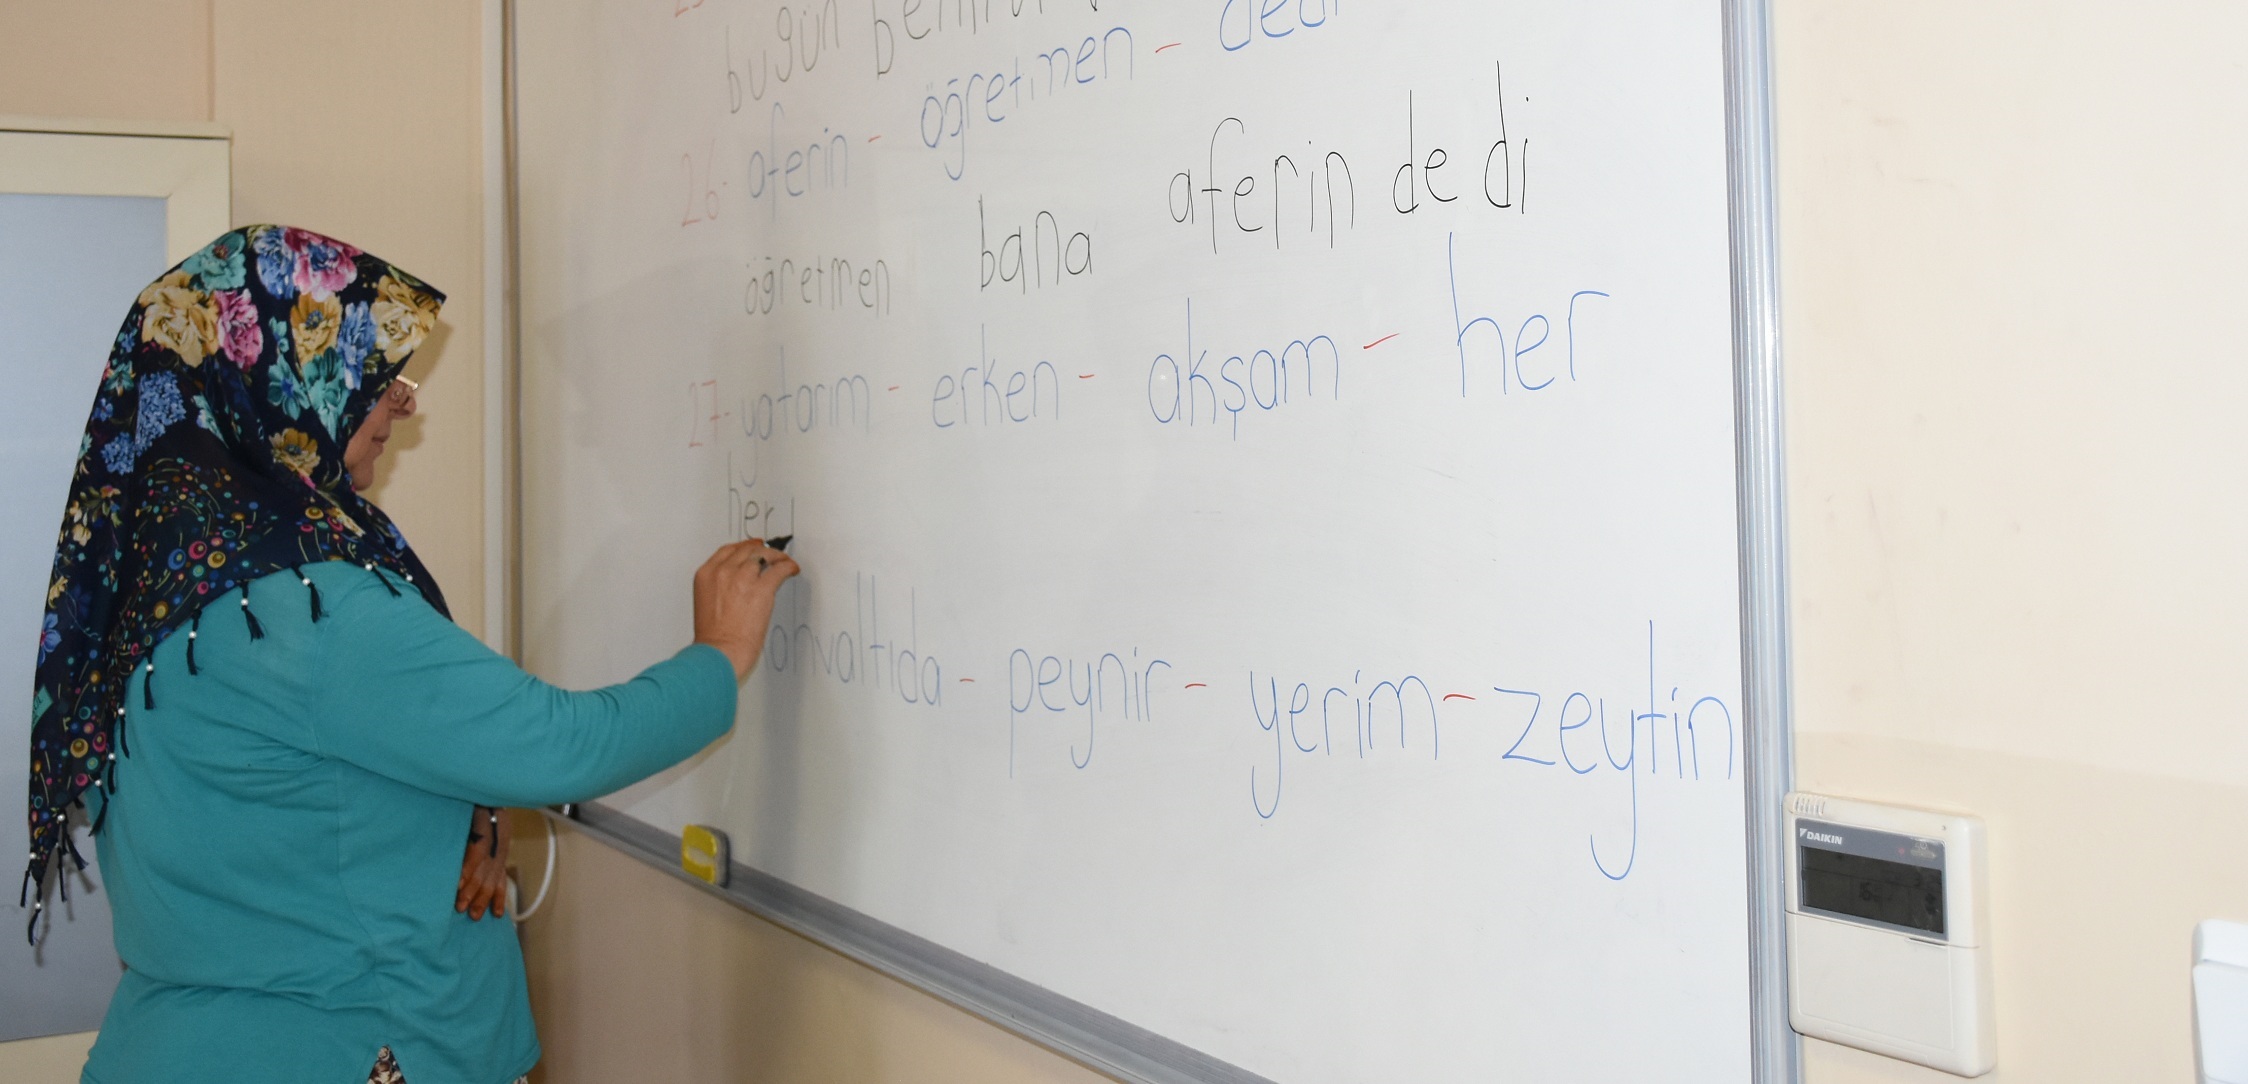 bugün
26- aferin - öğretmen - dedi
öğretmen bana aferin dedi
27- yatarım - erken - akşam - her
her
kahvaltıda - peynir - yerim - zeytin
DAIKIN